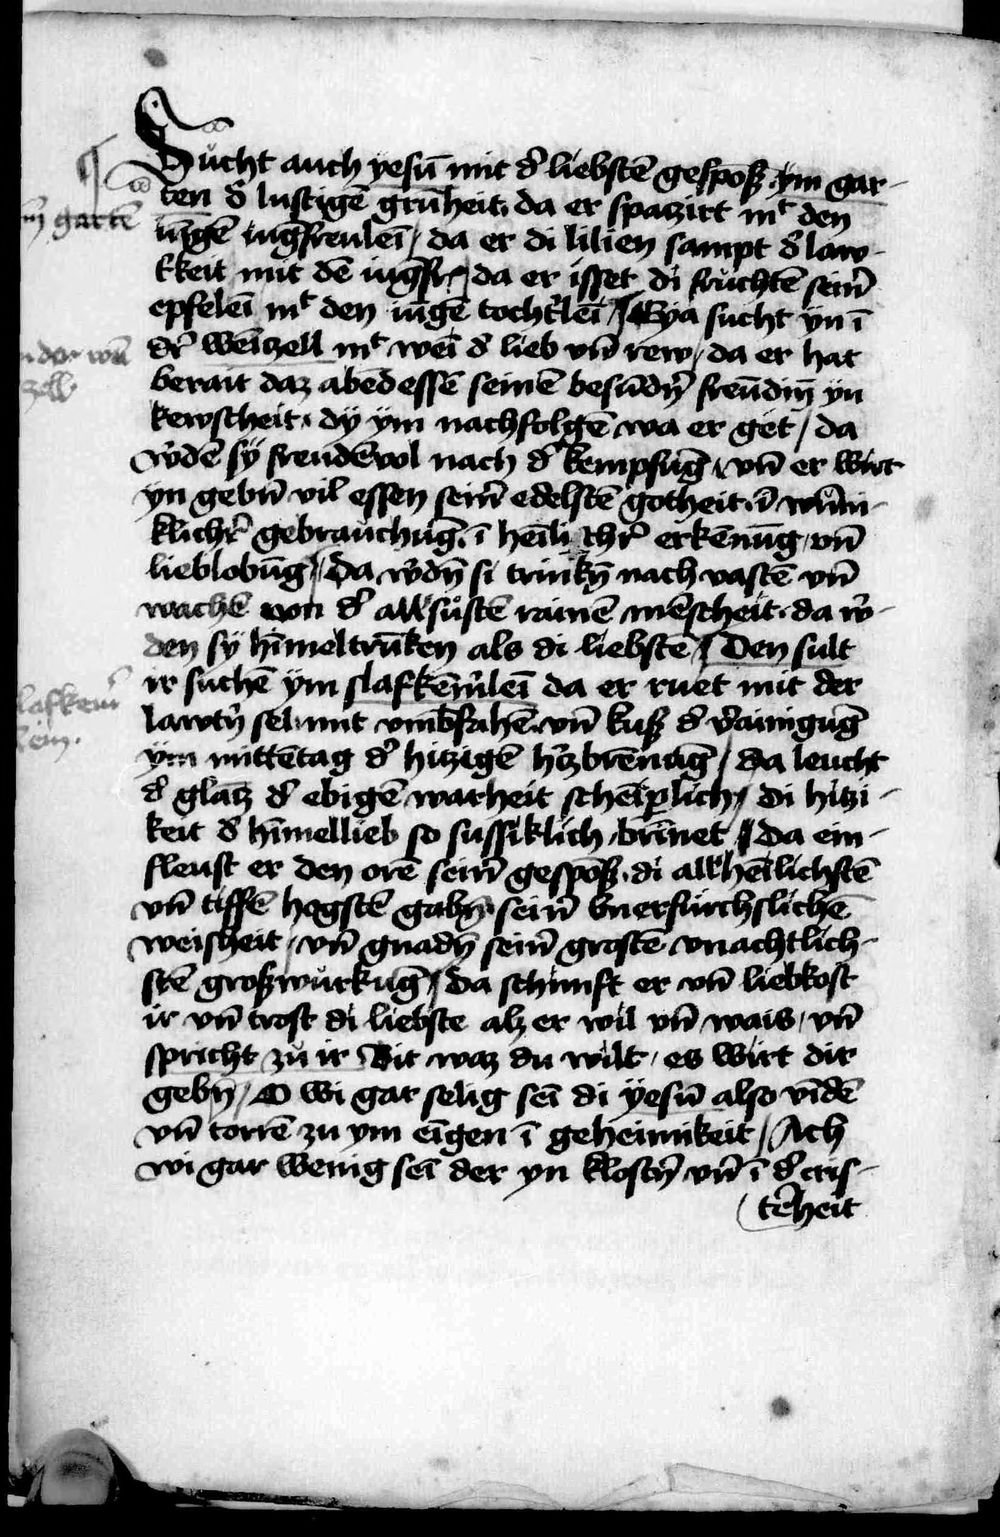 Sucht auch yesū mit d̉ liebstē gespōß ym gar-
ten d̉ lustigē grūheit, da er spatzirt mͭ den
iūgē iūgfreuleī / da er di lilien sampt d̉ law-
t̉keit mit dē iūgfr / da er isset di fruchtē sein̉
epfeleī mͭ den iūgē tocht̉leī / Eya sucht yn ī
dr̉ weīzell mͭ weī d̉ lieb vn̄ rew / da er hat
berait daz abēdessē seinē besūdn̉ freūdin̄ yn
kewscheit, dy ym nachfolgē wa er get / da
w̉dē sy freudēvol nach d̉ kempfūg, vn̄ er wirt
yn gebn̄ vil essen sein̉ edelstē gotheit, ī wūni-
klichr̉ gebrauchūg, ī heīlichr̉ erkēnūg, vn̄
lieblobūg / Da w̉dn̄ si trinkn̄ nach vastē vn̄
wachē von d̉ all̉sůstē rainē mēscheit, da w̉-
den sy hīmeltrūken als di liebstē / Den sult
ir suchē ym slafkēm̉leī da er ruet mit der
lawtn̉ sel, mit vmbfahē, vn̄ kuß d̉ v̉ainigūg
ym mittētag d̉ hitzigē h̉tzbrēnūg / da leucht
d̉ glātz d̉ ebigē warheit schēīperlich / di hitzi-
keit d̉ hīmellieb so sussiklich brīnet / Da ein-
fleust er den orē sein̉ gespōß, di all̉heīlichstē
vn̄ tiffē hogstē gabn̄, sein̉ vnerfurchslichē
weisheit / vn̄ gnadn̄ sein̉ grostē vnachtlich-
stē großwurkūg / Da schimft er vn̄ liebkost
ir vn̄ trost di liebste alz er wil vn̄ wais, vn̄
spricht zů ir Bit waz du wilt, es wirt dir
gebn̄ / O wi gar selig seī di yesū also vīdē
vn̄ torrē zu ym eīgen ī geheimikeit / Ach
wi gar wenig seī der yn klostn̉ vn̄ ī d̉ cris-
tēheit
m̄ gartē
n der wīn
zell
lafkem̉
lein.